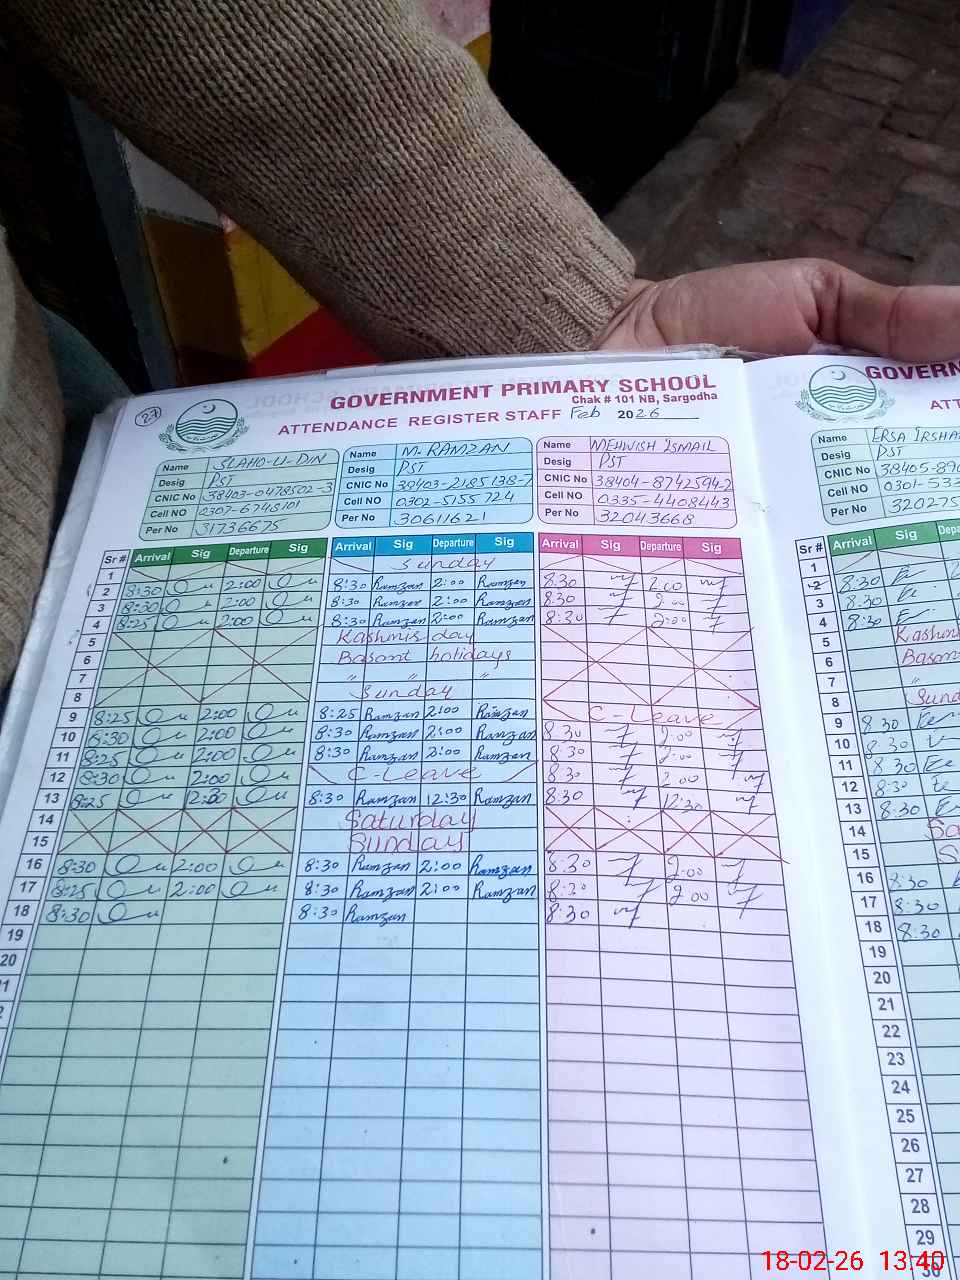 27
GOVERNMENT PRIMARY SCHOOL
Chak # 101 NB, Sargodha
ATTENDANCE REGISTER STAFF Feb 2026
Name SLAHO-U-DIN
Desig PST
CNIC No 38403-0478502-3
Cell NO 0307-6748101
Per No 31736675
Name M-RAMZAN
Desig PST
CNIC No 38403-2185138-7
Cell NO 0302-5155724
Per No 30611621
Name MEHWISH ISMAIL
Desig PST
CNIC No 38404-8742594-2
Cell NO 0335-4408443
Per No 32043668
Sr # Arrival Sig Departure Sig Arrival Sig Departure Sig Arrival Sig Departure Sig
1 Sunday
2 8:30 2:00 8:30 Ramzan 2:00 Ramzan 8:30 2:00
3 8:30 2:00 8:30 Ramzan 2:00 Ramzan 8:30 2:00
4 8:25 2:00 8:30 Ramzan 2:00 Ramzan 8:30 2:00
5 Kashmir day
6 Basant holidays
7 " " "
8 Sunday
9 8:25 2:00 8:25 Ramzan 2:00 Ramzan C-Leave
10 8:30 2:00 8:30 Ramzan 2:00 Ramzan 8:30 2:00
11 8:25 2:00 8:30 Ramzan 2:00 Ramzan 8:30 2:00
12 8:30 2:00 C-Leave 8:30 2:00
13 8:25 12:30 8:30 Ramzan 12:30 Ramzan 8:30 12:30
14 Saturday
15 Sunday
16 8:30 2:00 8:30 Ramzan 2:00 Ramzan 8:30 2:00
17 8:25 2:00 8:30 Ramzan 2:00 Ramzan 8:30 2:00
18 8:30 8:30 Ramzan 8:30
19
20
GOVERN
ATT
Name ERSA IRSHA
Desig PST
CNIC No 38405-890
Cell NO 0301-533
Per No 320275
Sr # Arrival Sig Depa
1
2 8:30
3 8:30
4 8:30
5 Kashmi
6 Basan
7 "
8 Sund
9 8:30
10 8:30
11 8:30
12 8:30
13 8:30
14 Sa
15 S
16 8:30
17 8:30
18 8:30
19
20
21
22
23
24
25
26
27
28
29
30
18-02-26 13:40